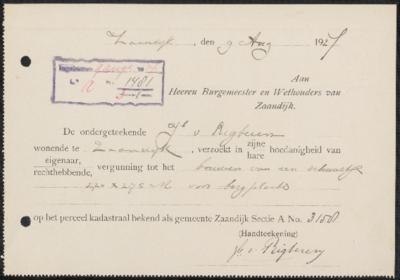 Zaandijk, den 9 Aug 1927
Ingekomen
No 1481
Aan
Heeren Burgemeester en Wethouders van
Zaandijk.
De ondergeteekende
wonende te Zaandijk, verzoekt in zijne hoedanigheid van
hare
eigenaar,
rechthebbende, vergunning tot het bouwen van een
voor bergplaats
op het perceel kadastraal bekend als gemeente Zaandijk Sectie A No.
(Handteekening)